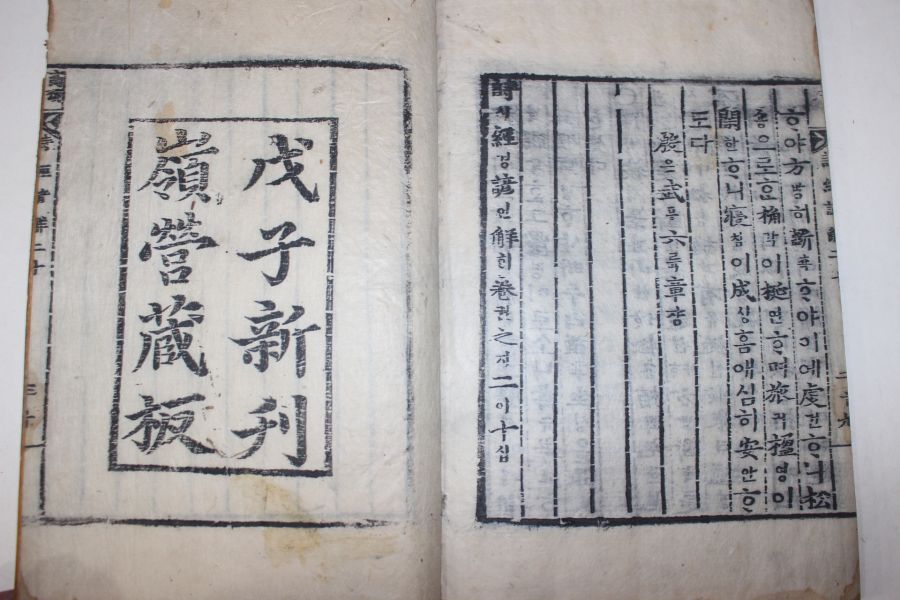 ᄒᆞ야方방히斲쟉ᄒᆞ야이에虔건ᄒᆞ니松
숑으로ᄒᆞᆫ桷각이梴연ᄒᆞ며旅려楹영이
閑한ᄒᆞ니寢침이成셩홈애심히安안ᄒᆞ
도다
殷은武무六륙章쟝
詩시經경諺언解ᄒᆡ卷권之지二이十십
戊子新刊
嶺營藏板